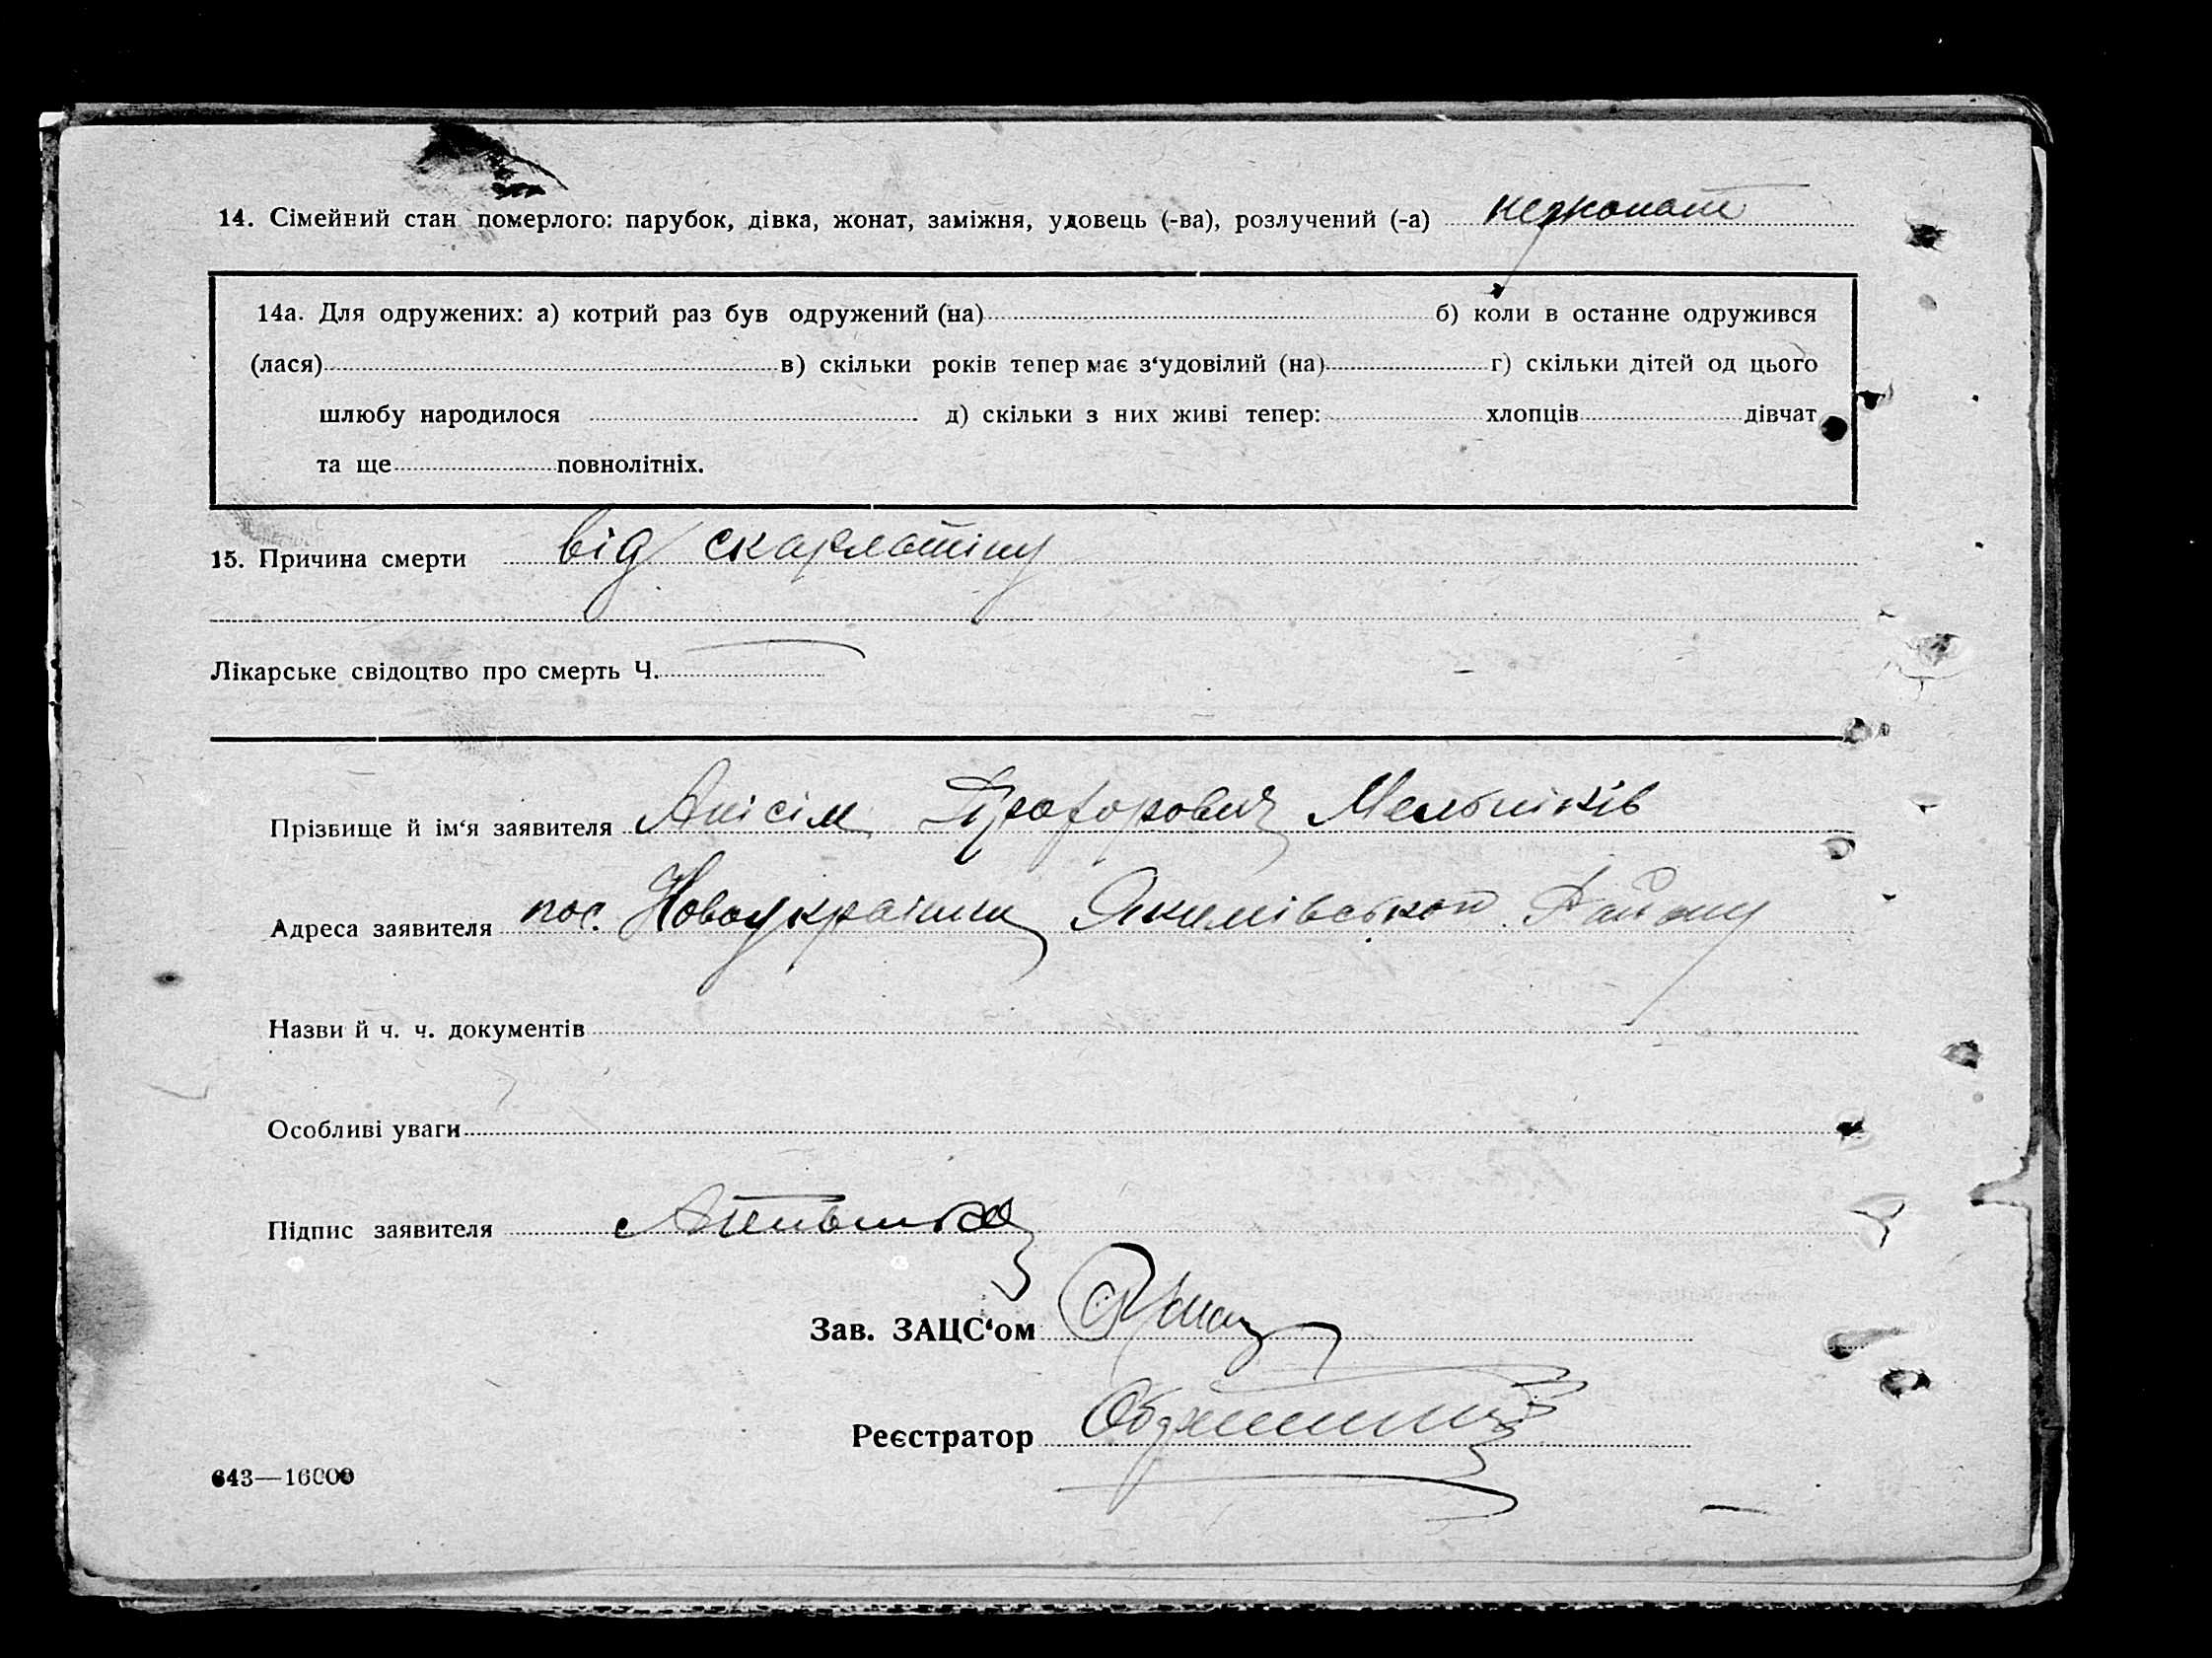 14. Сімейний стан померлого: парубок, дівка, жонат, заміжня, удовець (-ва), розлучений (-а) нежонат
14а. Для одружених: а) котрий раз був одружений (на) б) коли в останне одружився
(лася) в) скільки років тепер має з‘удовілий (на) г) скільки дітей од цього
шлюбу народилося д) скільки з них живі тепер: хлопців дівчат
та ще повнолітніх.
15. Причина смерти від скарлатіни
Лікарське свідоцтво про смерть Ч.
Прізвище й ім‘я заявителя Анісім Мельників
Адреса заявителя пос. Новоукраїнки Якимівського Району
Назви й ч. ч. документів
Особливі уваги
Підпис заявителя
Зав. ЗАЦС‘ом
Реєстратор
643—16000